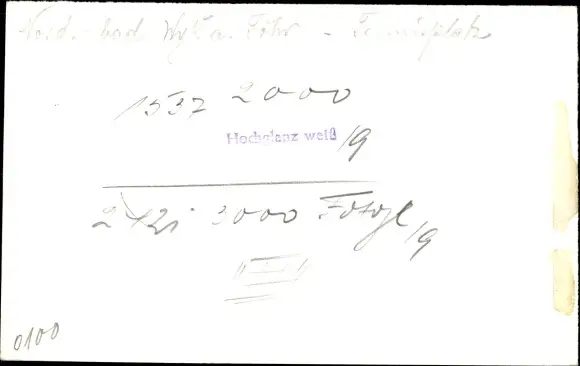 Nordseebad Wyk a. Föhr - Tennisplatz
1537 2000
Hochglanz weiß /9
3000 Fotogl /9
0100